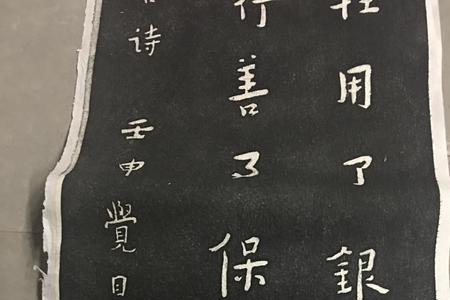 用了銀
行善了保
诗 壬申 覺